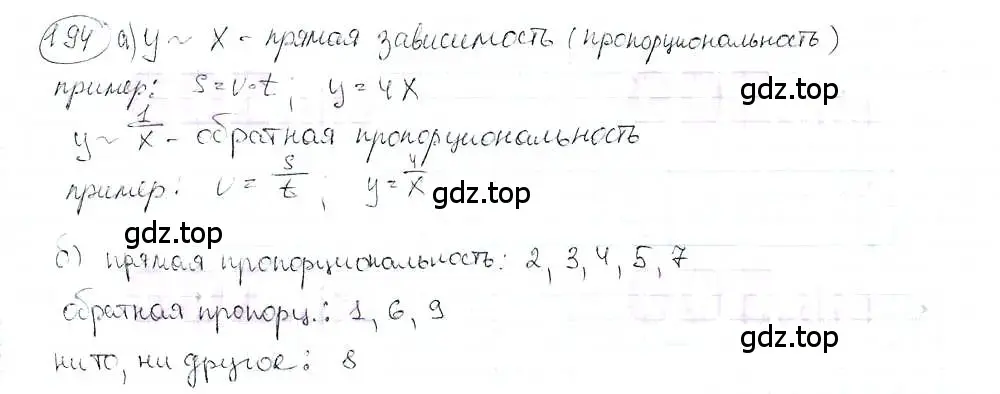 194 а) y ~ x - прямая зависимость (пропорциональность)
пример: S = v·t ; y = 4x
gdz.top
y ~ 1/x - обратная пропорциональность
пример: v = S/t ; y = 4/x
gdz.top
gdz.top
б) прямая пропорциональность: 2, 3, 4, 5, 7
обратная пропорц.: 1, 6, 9
gdz.top
ни то, ни другое: 8